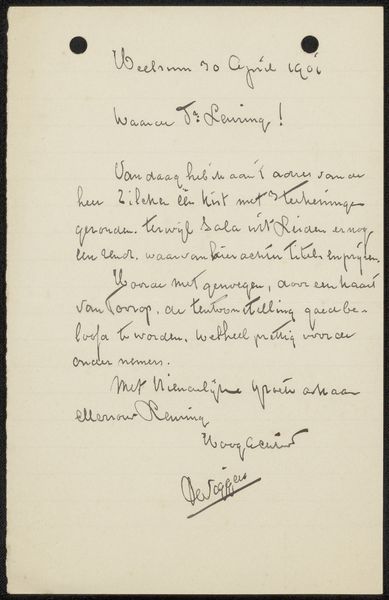 Heelsum 30 April 1901
Waarde Dr Leuring!
Van daag heb ik aan 't adres van de
heer Zilcken één kist met 3 teekeningen
gezonden. terwijl Sala uit Leiden er nog
één zendt. waarvan hier achter titels en prijzen.
Hoorde met genoegen, door een kaart
van Toorop. de tentoonstelling goed be-
loofd te worden. wel heel prettig voor de
onder nemers.
Met vriendelijke groeten ook aan
Mevrouw Leuring
Hoogachtend